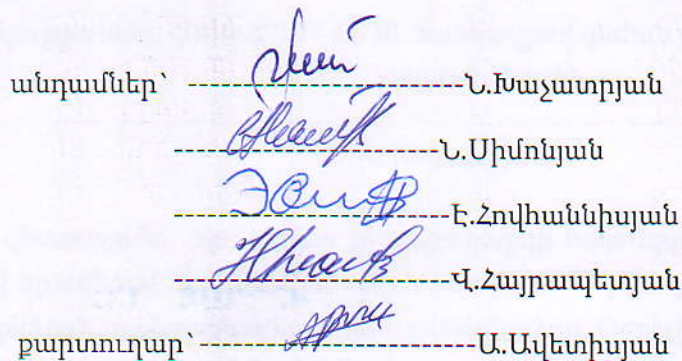 անդամներ՝ --------------------Ն.Խաչատրյան
--------------------Ն.Սիմոնյան
--------------------Է.Հովհաննիսյան
--------------------Վ.Հայրապետյան
քարտուղար--------------------Ա.Ավետիսյան